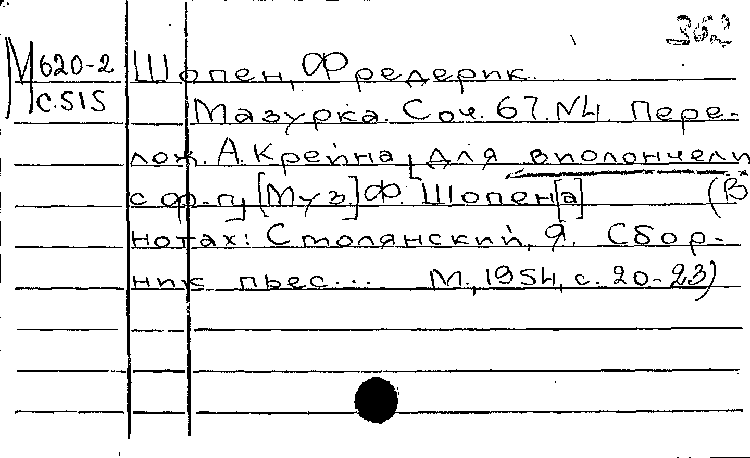 362
М620-2
С.515
Шопен, Фредерик.
Мазурка. Соч. 67. №4. Пере-
лож. А. Крейна, [для виолончели
с ф.-п.] [Муз.] Ф. Шопен[а] (В
нотах: Столянский, Я. Сбор-
ник пьес... М., 1954, с. 20-23)